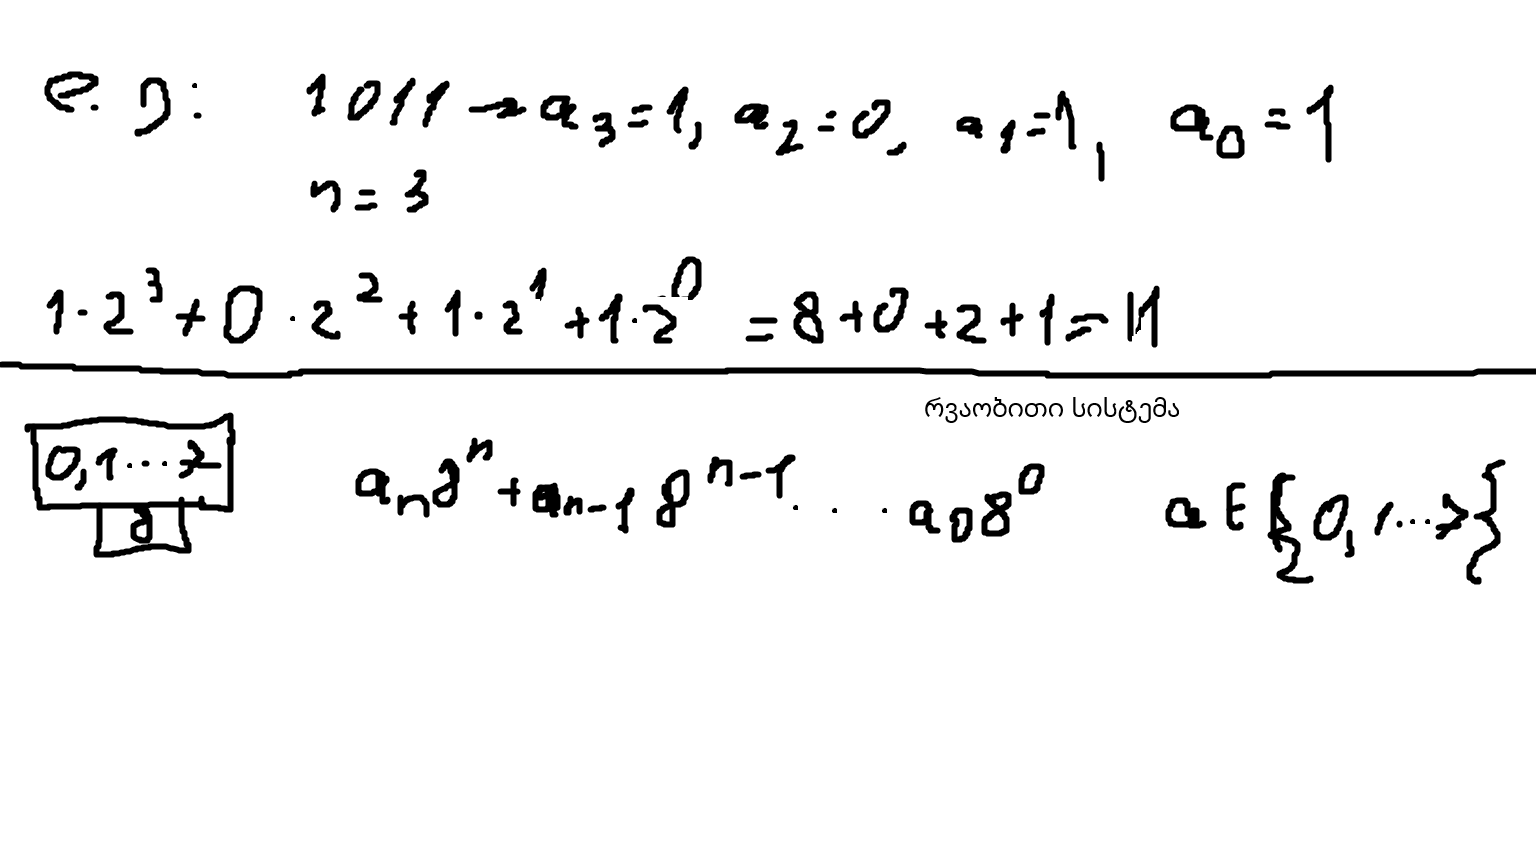 e.g: 1011 → a₃=1, a₂=0, a₁=1, a₀=1
n=3
1·2³+0·2²+1·2¹+1·2⁰ =8+0+2+1=11
რვაობითი სისტემა
0,1...7
8
aₙ8ⁿ+aₙ₋₁8ⁿ⁻¹... a₀8⁰ a∈{0,1...7}